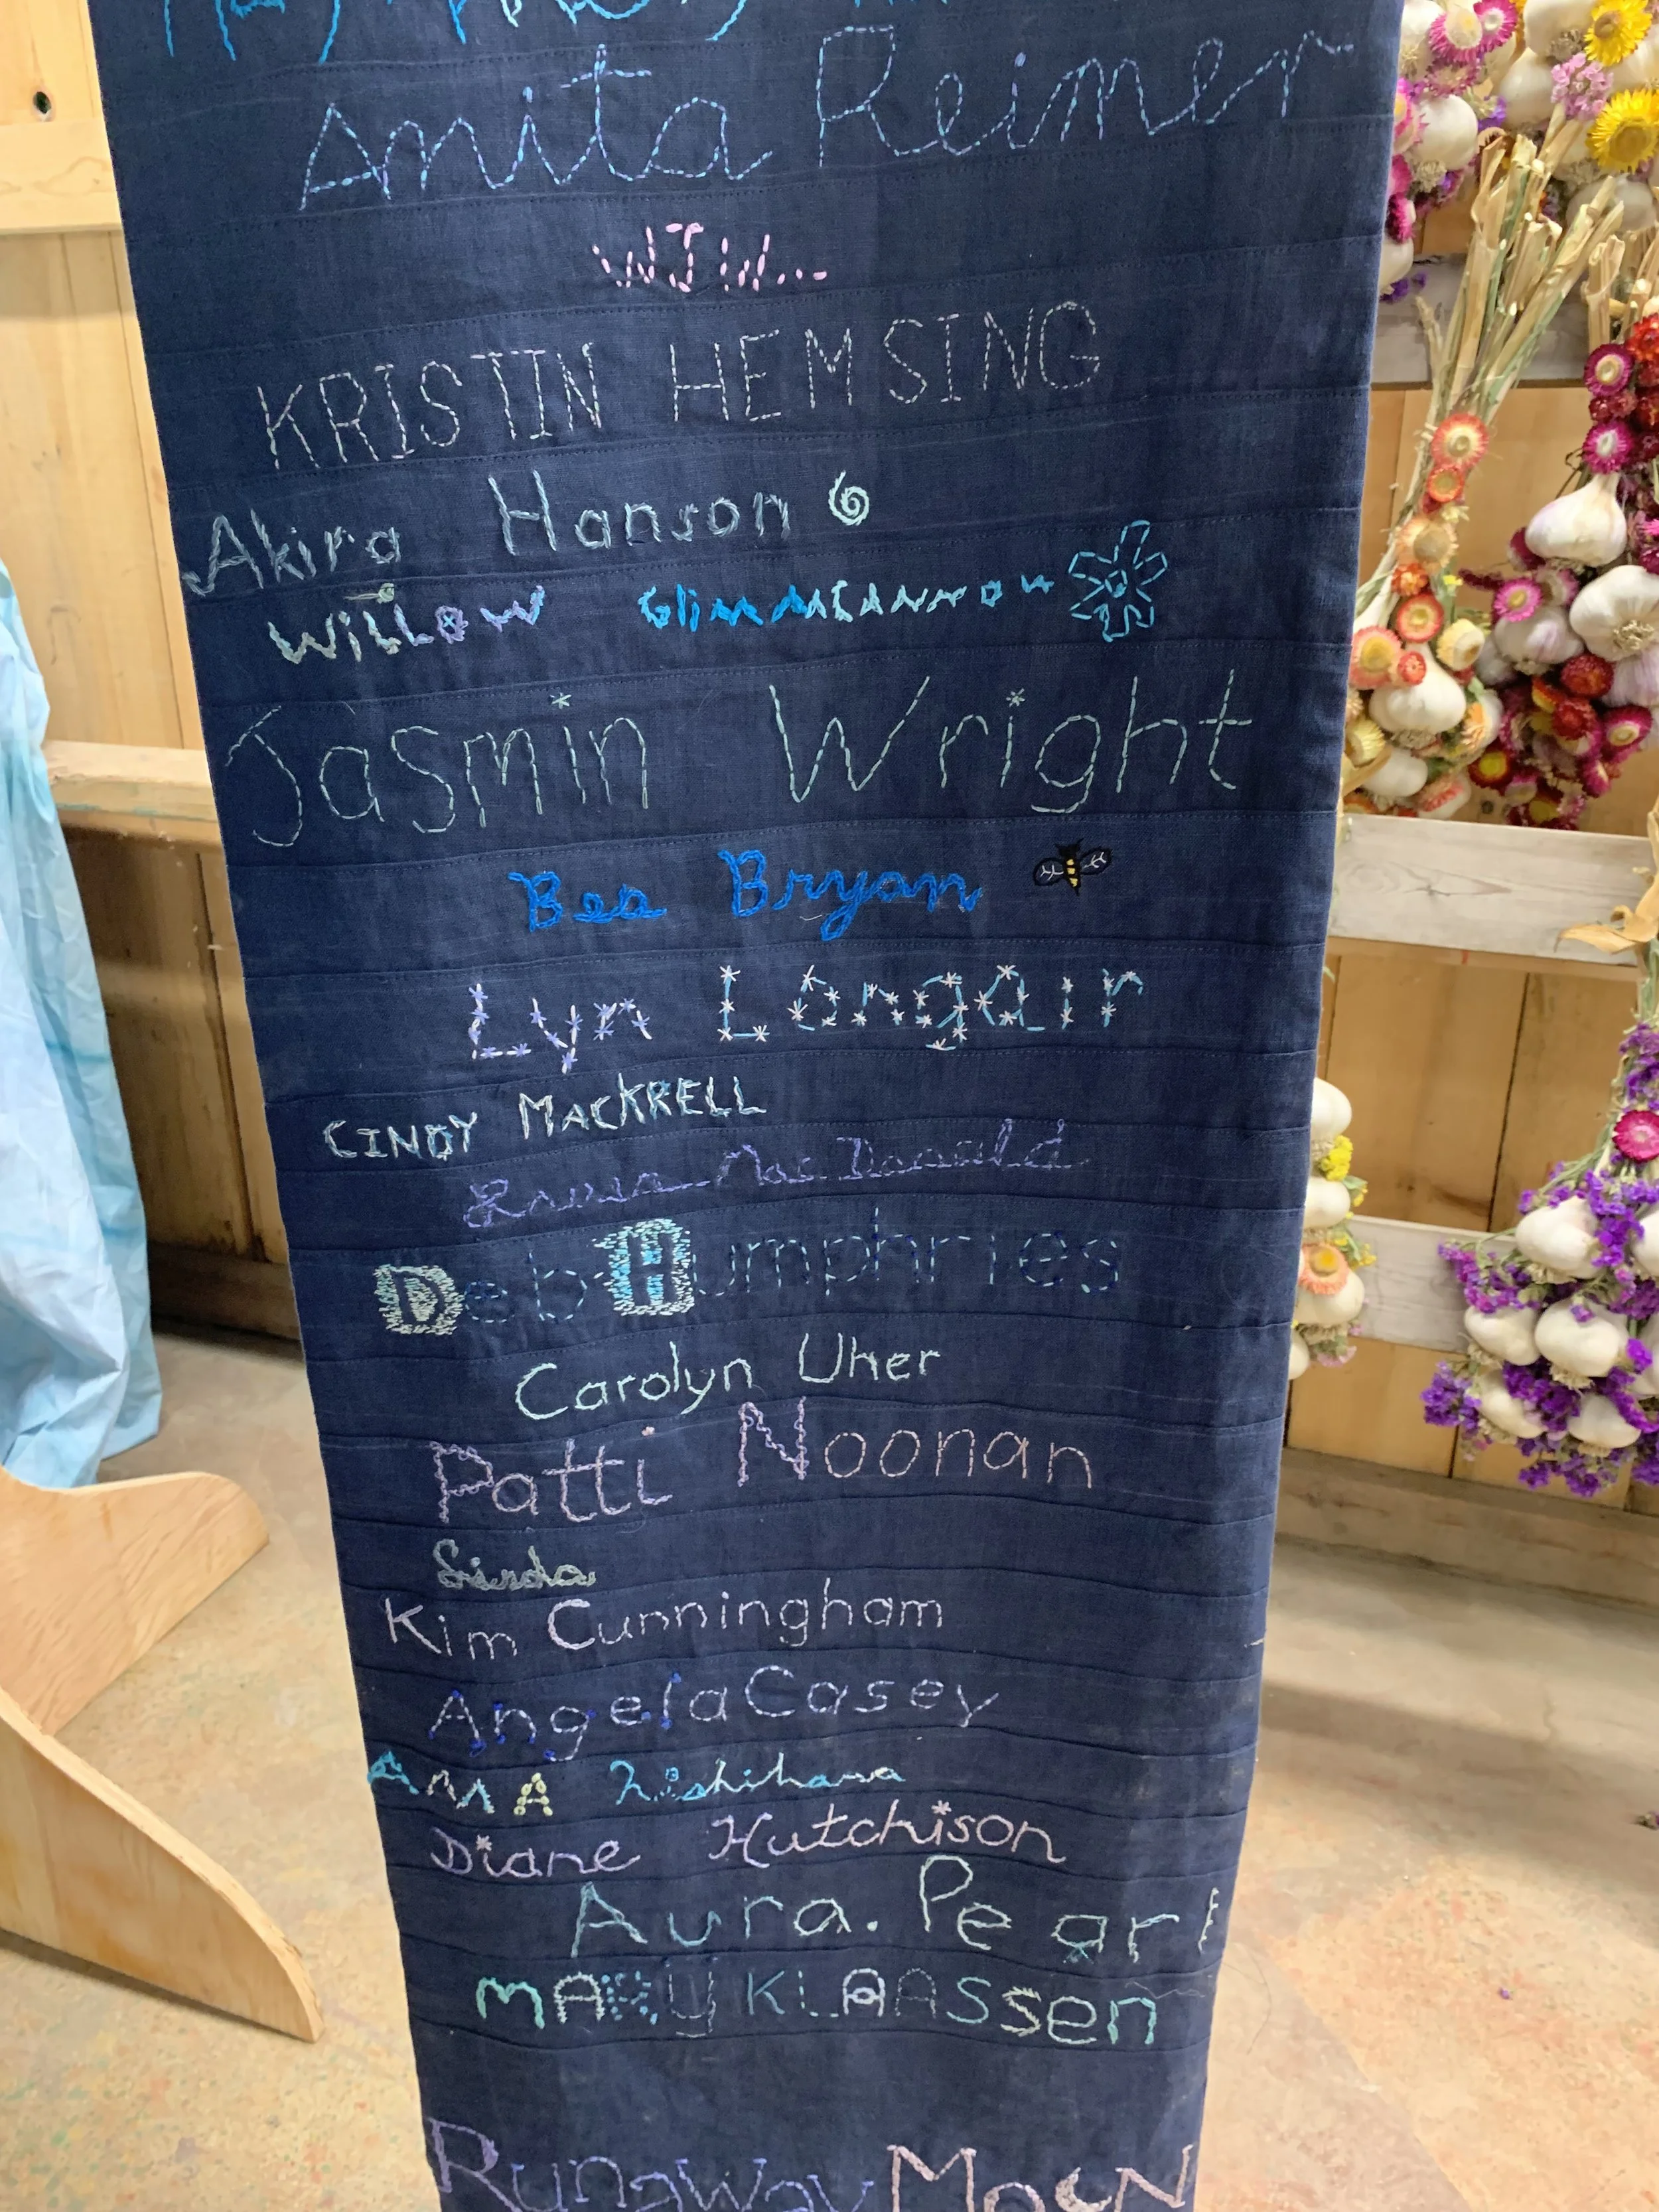 Anita Reimer
WJW...
KRISTIN HEMSING
Akira Hanson
WiLLOW
Jasmin Wright
Bea Bryan
Lyn Longair
CINDY MACKRELL
MacDonald
Deb Humphries
Carolyn Uher
Patti Noonan
Kim Cunningham
Angela Casey
AMA Nishihama
Diane Hutchison
Aura. Pearl
MARY KLAASSen
Runaway MooN